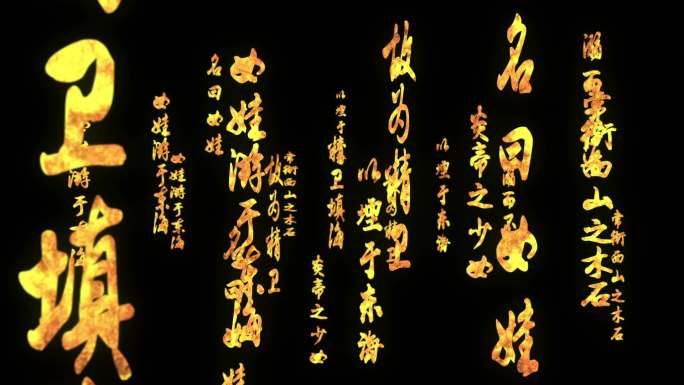 常衔西山之木石
常衔西山之木石
名曰女娃
炎帝之少女
以堙于东海
故为精卫
以堙于东海
精卫填海
以堙于东海
炎帝之少女
常衔西山之木石
故为精卫
女娃游于东海
名曰女娃
女娃游于东海
女娃游于东海
游于东海
卫填